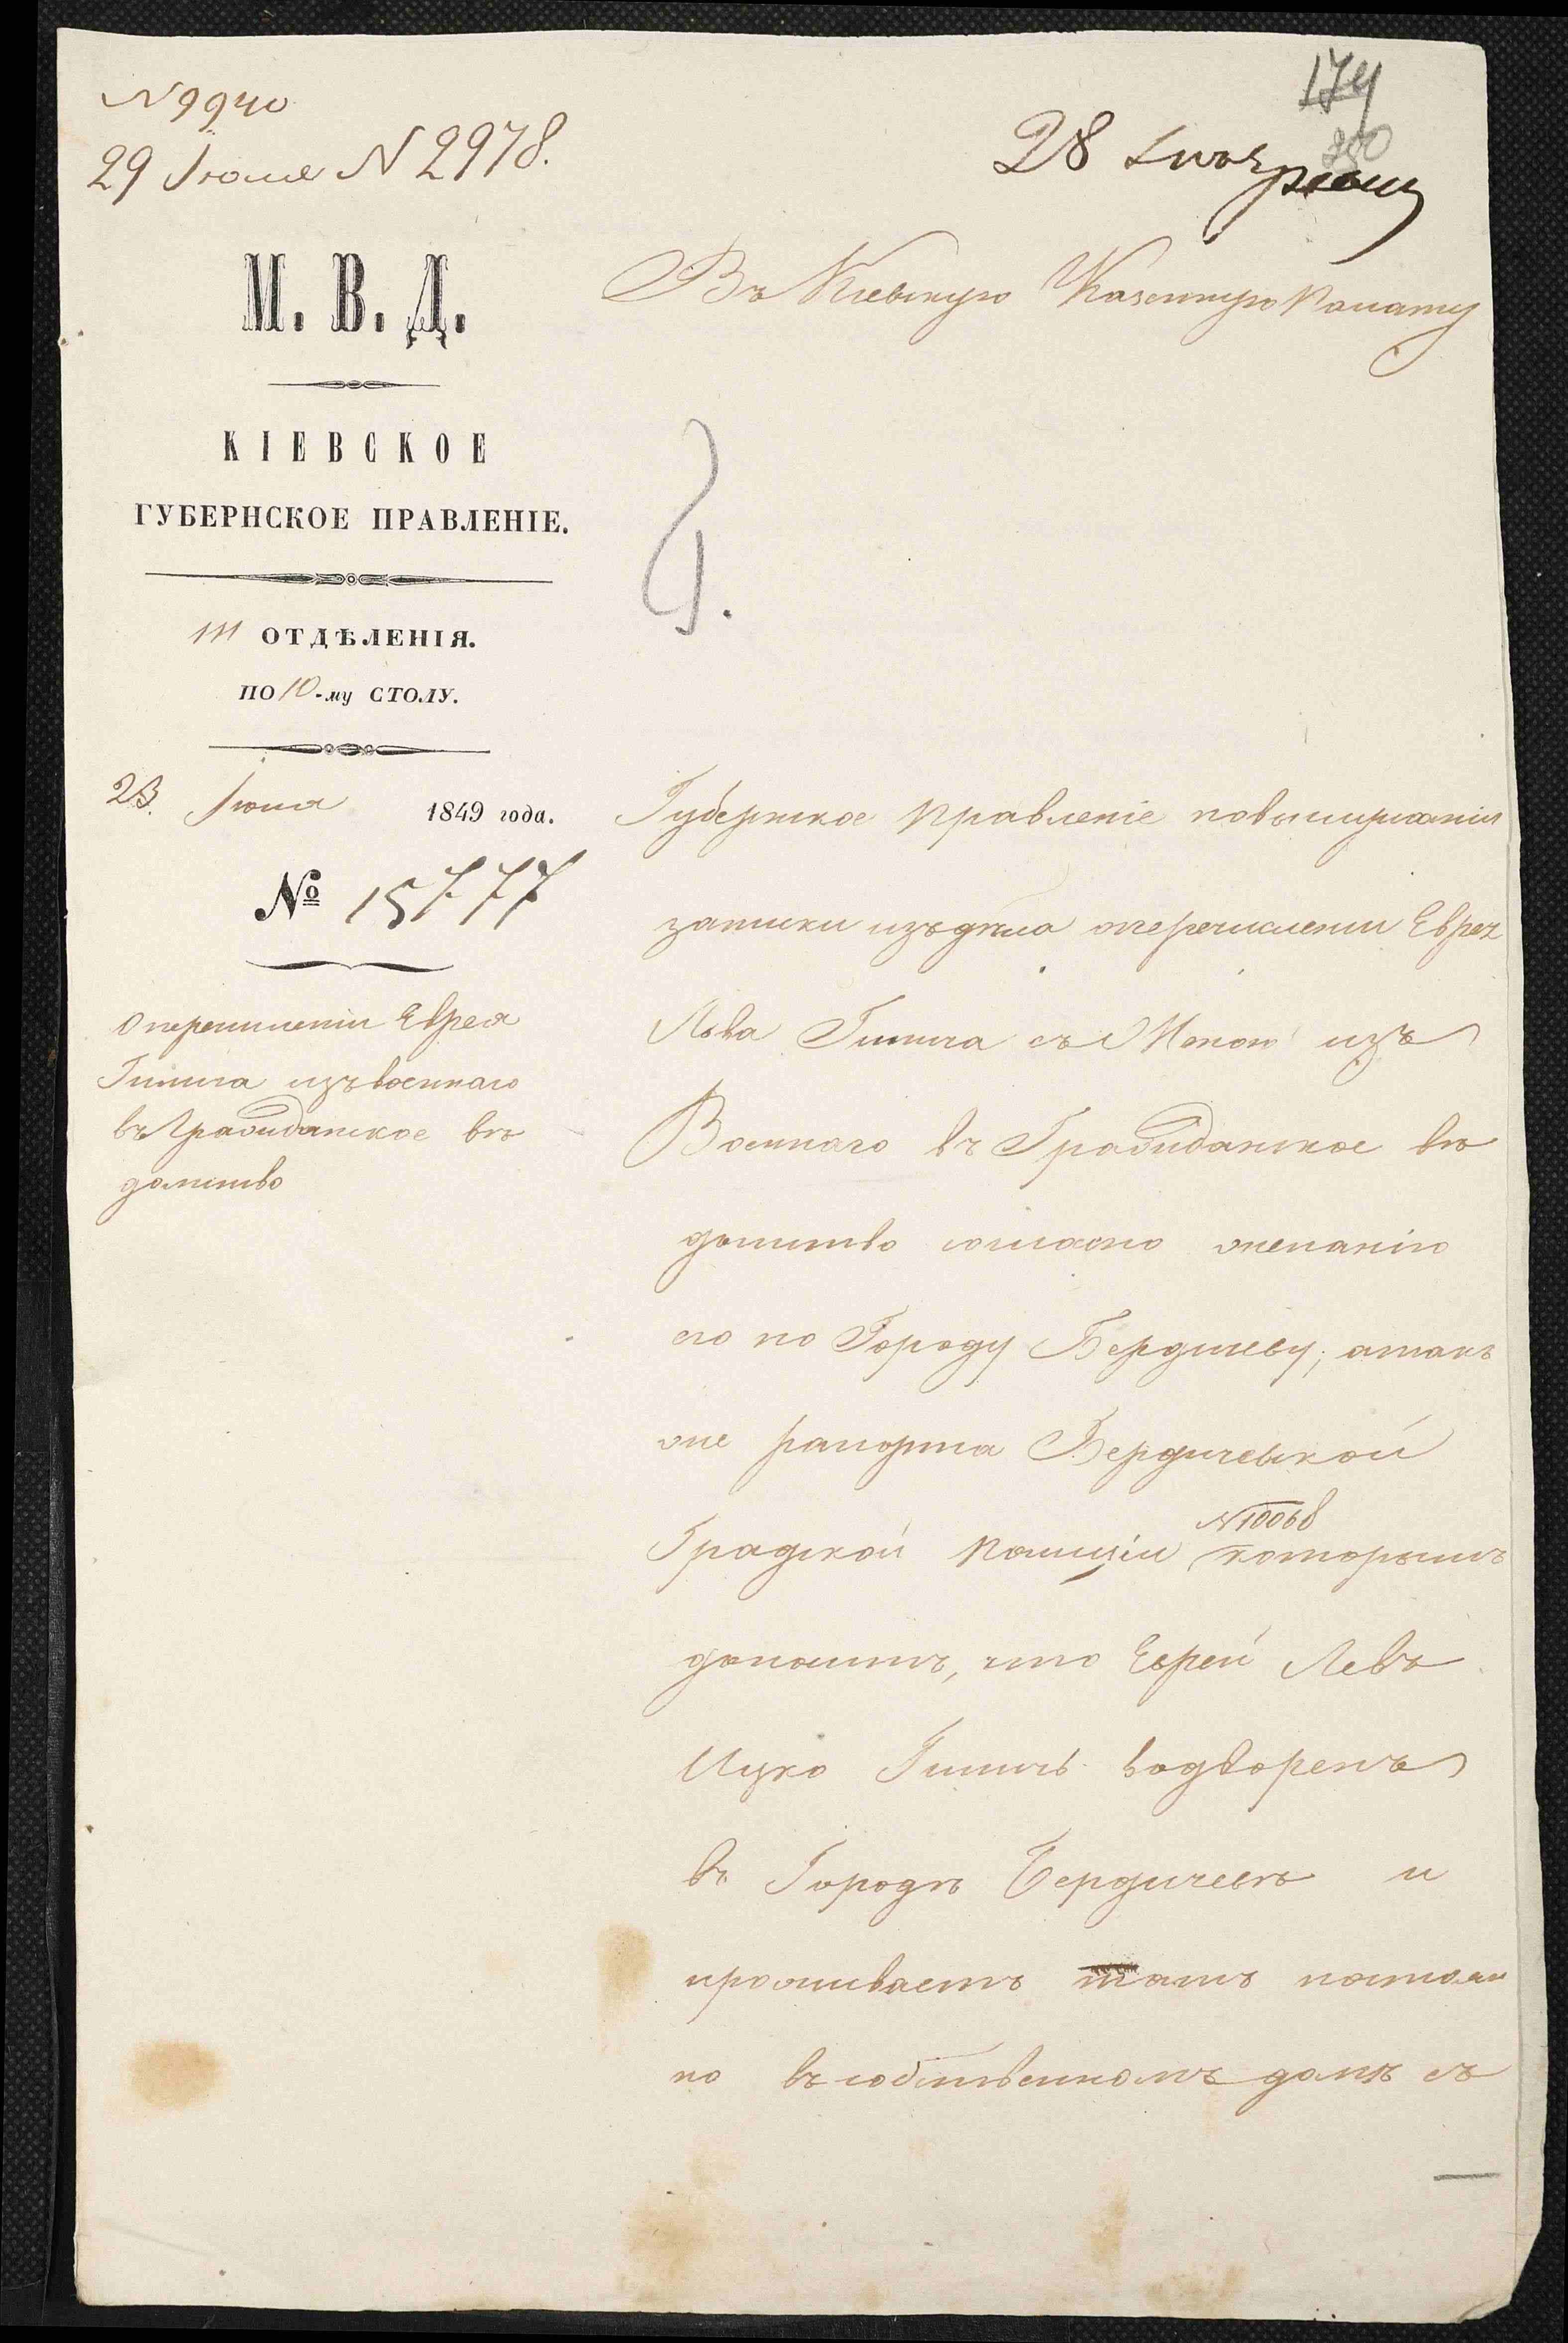 N 9940
29 Іюня N 2978.
174
28 Іюня
Въ Кіевскую Казенную Палату
М. В. Д.
КІЕВСКОЕ
ГУБЕРНСКОЕ ПРАВЛЕНІЕ.
III ОТДѢЛЕНІЯ.
ПО 10-му СТОЛУ.
23. Іюня 1849 года.
№ 15777
О перечисленіи Еврея
изъ военнаго
въ Гражданское вѣ
домство
Губернское Правленіе повыслушаніи
записки изъ дѣла оперечисленіи Еврея
Льва съ Женою изъ
Военнаго въ Гражданское вѣ
домство согласно желанію
его по Городу Бердичеву, атакъ
же рапорта Бердичевской
N 10068
Градской Полиціи которымъ
доноситъ, что Еврей Левъ
Ицко водворенъ
въ Городѣ Бердичевѣ и
проживаетъ тамъ постоян
но въ собственномъ домѣ съ